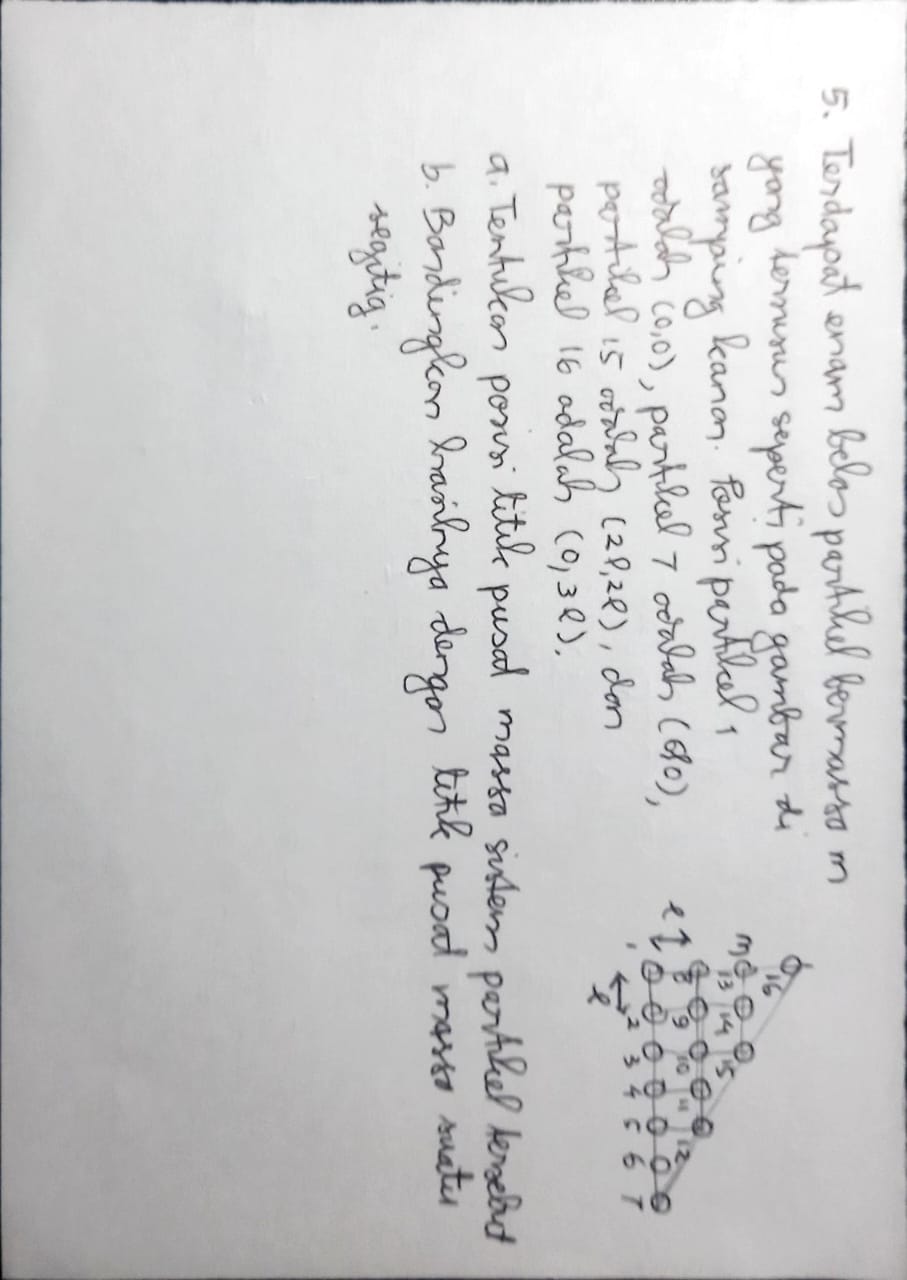 5. Terdapat enam belas partikel bermassa m
yang tersusun seperti pada gambar di
samping kanan. Posisi partikel 1
adalah (0,0), partikel 7 adalah (6l,0),
partikel 15 adalah (2l,2l), dan
partikel 16 adalah (0,3l).
a. Tentukan posisi titik pusat massa sistem partikel tersebut
b. Bandingkan hasilnya dengan titik pusat massa suatu
segitig.
16
m
13 14 15
8 9 10 11 12
l
1 2 3 4 5 6 7
l